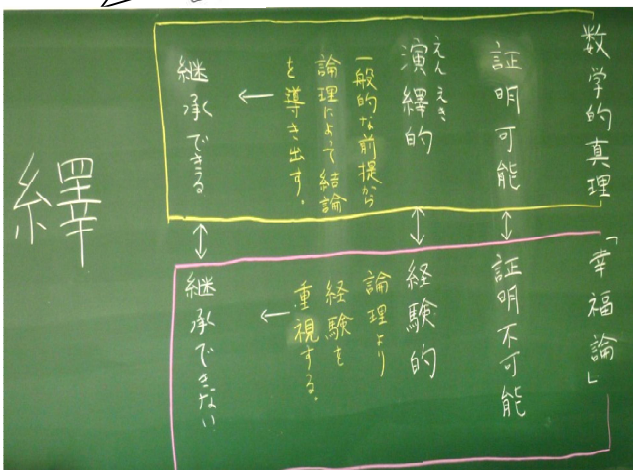 数学的真理
証明可能
えんえき
演繹的
一般的な前提から
論理によって結論
を導き出す。
←
継承できる
「幸福論」
証明不可能
経験的
論理より
経験を
重視する。
←
継承できない
繹